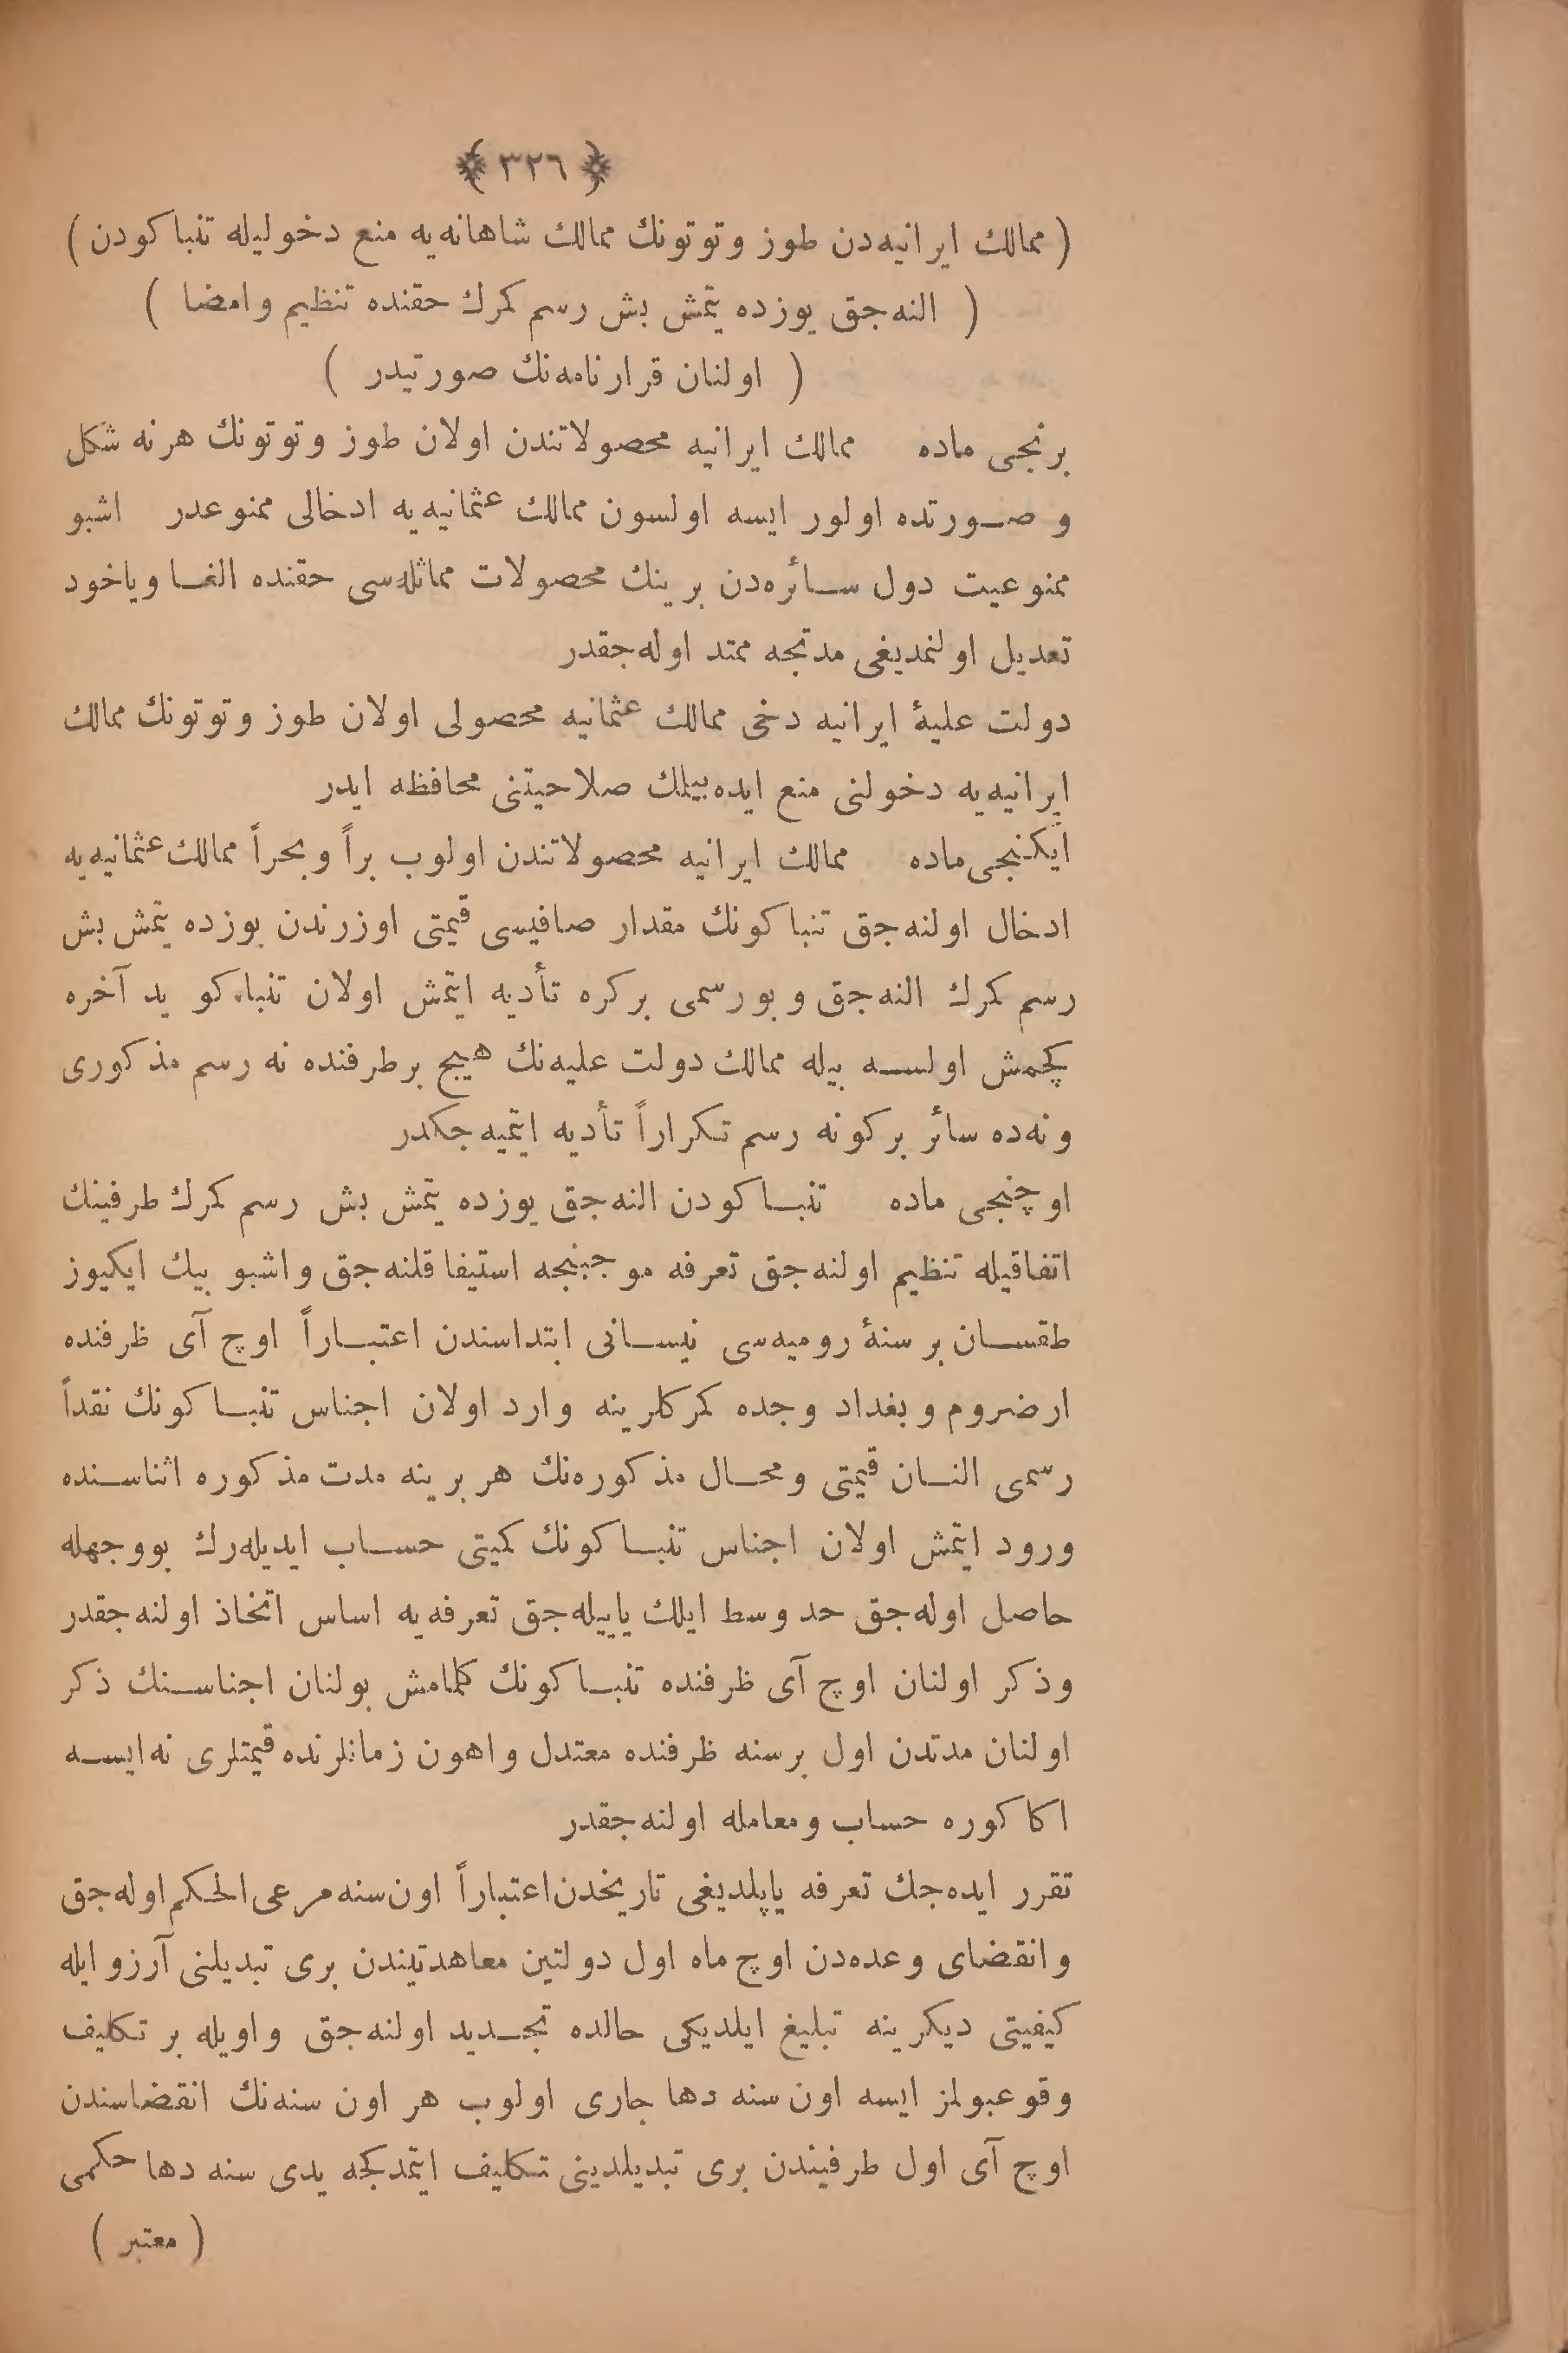 ﴿ ٣٢٦ ﴾
( ممالك ايرانيه‌دن طوز وتوتونك ممالك شاهانه‌يه منع دخوليله تنباكودن )
( النه‌جق يوزده يتمش بش رسم كمرك حقنده تنظيم وامضا )
( اولنان قرارنامه‌نك صورتيدر )
برنجى ماده ممالك ايرانيه محصولاتندن اولان طوز وتوتونك هرنه شكل
و صورتده اولور ايسه اولسون ممالك عثمانيه‌يه ادخالى ممنوعدر اشبو
ممنوعيت دول سائره‌دن برينك محصولات مماثله‌سى حقنده الغا وياخود
تعديل اولنمديغى مدتجه ممتد اوله‌جقدر
دولت عليهٔ ايرانيه دخى ممالك عثمانيه محصولى اولان طوز وتوتونك ممالك
ايرانيه‌يه دخولنى منع ايده‌بيلمك صلاحيتنى محافظه ايدر
ايكنجى ماده ممالك ايرانيه محصولاتندن اولوب براً وبحراً ممالك عثمانيه‌يه
ادخال اولنه‌جق تنباكونك مقدار صافيسى قيمتى اوزرندن يوزده يتمش بش
رسم كمرك النه‌جق وبو رسمى بركره تأديه ايتمش اولان تنباكو يد آخره
كچمش اولسه بيله ممالك دولت عليه‌نك هيچ برطرفنده نه رسم مذكورى
ونه‌ده سائر بركونه رسم تكراراً تأديه ايتميه‌جكدر
اوچنجى ماده تنباكودن النه‌جق يوزده يتمش بش رسم كمرك طرفينك
اتفاقيله تنظيم اولنه‌جق تعرفه موجبنجه استيفا قلنه‌جق واشبو بيك ايكيوز
طقسان بر سنهٔ روميه‌سى نيسانى ابتداسندن اعتباراً اوچ آى ظرفنده
ارضروم وبغداد وجده كمركلرينه وارد اولان اجناس تنباكونك نقداً
رسمى النان قيمتى ومحال مذكوره‌نك هر برينه مدت مذكوره اثناسنده
ورود ايتمش اولان اجناس تنباكونك كميتى حساب ايديله‌رك بووجهله
حاصل اوله‌جق حد وسط ايلك ياپيله‌جق تعرفه‌يه اساس اتخاذ اولنه‌جقدر
وذكر اولنان اوچ آى ظرفنده تنباكونك كلمامش بولنان اجناسنك ذكر
اولنان مدتدن اول برسنه ظرفنده معتدل واهون زمانلرنده قيمتلرى نه ايسه
اكا كوره حساب ومعامله اولنه‌جقدر
تقرر ايده‌جك تعرفه ياپلديغى تاريخدن اعتباراً اون سنه مرعى الحكم اوله‌جق
وانقضاى وعده‌دن اوچ ماه اول دولتين معاهدتيندن برى تبديلنى آرزو ايله
كيفيتى ديكرينه تبليغ ايلديكى حالده تجديد اولنه‌جق واويله بر تكليف
وقوعبولمز ايسه اون سنه دها جارى اولوب هر اون سنه‌نك انقضاسندن
اوچ آى اول طرفيندن برى تبديلدينى تكليف ايتمدكجه يدى سنه دها حكمى
( معتبر )